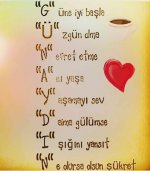 "G" üne iyi başla
"Ü" zgün olma
"N" efret etme
"A" nı yaşa
"Y" aşamayı sev
"D" aima gülümse
"I" şığını yansıt
"N" e olursa olsun şükret